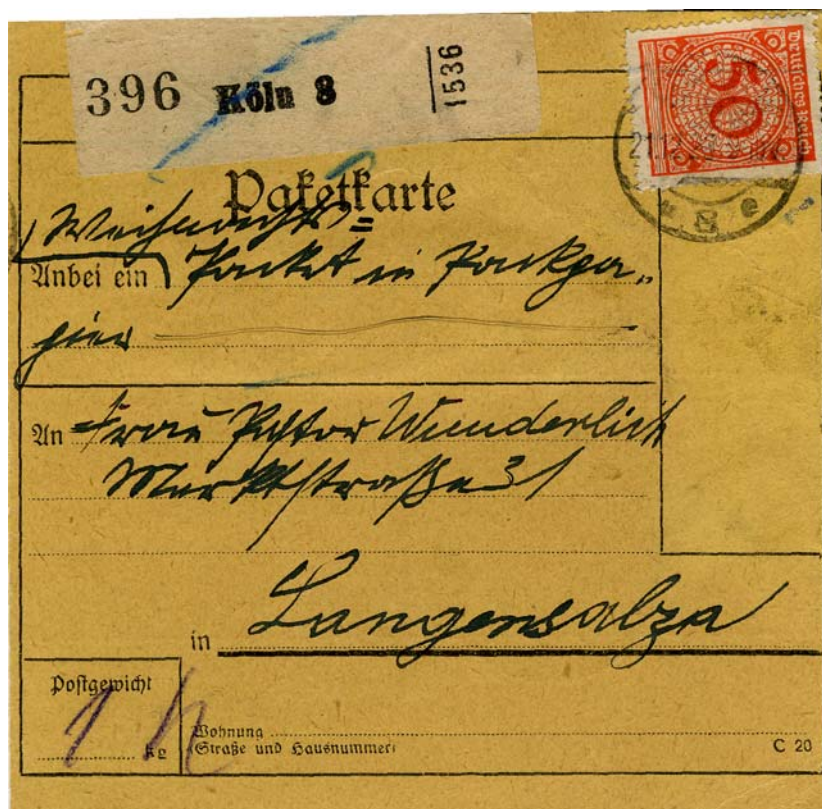 396 Köln 8 1536
50 Deutsches Reich
21.12.
* 8 e
Paketkarte
Weihnachts=
Anbei ein Packet in Packpa„
pier
An Frau Pastor Wunderlich
Marktstraße 31
in Langensalza
Postgewicht
1 kg
Wohnung
(Straße und Hausnummer)
C 20